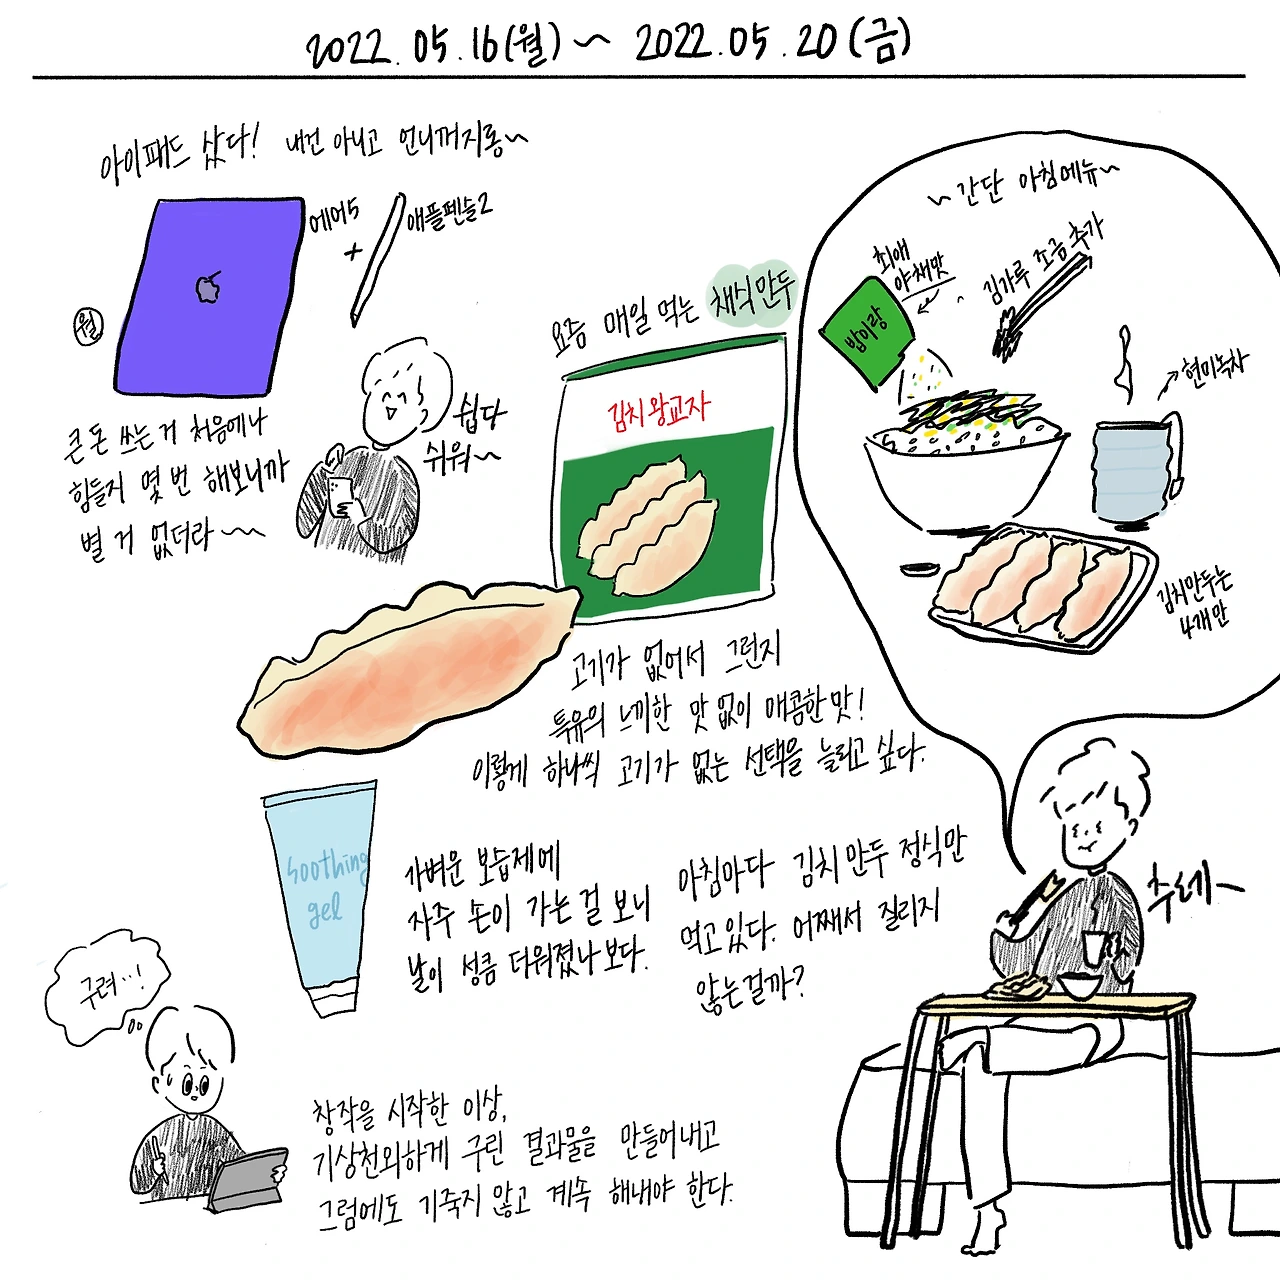 2022.05.16(월) ~ 2022.05.20(금)
아이패드 샀다! 내건 아니고 언니꺼지롱~
에어5
+
애플펜슬2
월
큰 돈 쓰는 거 처음에나
힘들지 몇 번 해보니까
별 거 없더라~~
쉽다
쉬워~
요즘 매일 먹는 채식만두
김치왕교자
고기가 없어서 그런지
특유의 느끼한 맛 없이 매콤한 맛!
이렇게 하나씩 고기가 없는 선택을 늘리고 싶다.
~간단 아침메뉴~
최애
야채맛
밥이랑
김가루 조금 추가
현미녹차
김치만두는
4개만
soothing
gel
가벼운 보습제에
자주 손이 가는 걸 보니
날이 성큼 더워졌나보다.
아침마다 김치만두 정식만
먹고있다. 어째서 질리지
않는걸까?
추릅~
구려...!
창작을 시작한 이상,
기상천외하게 구린 결과물을 만들어내고
그럼에도 기죽지 않고 계속 해내야 한다.